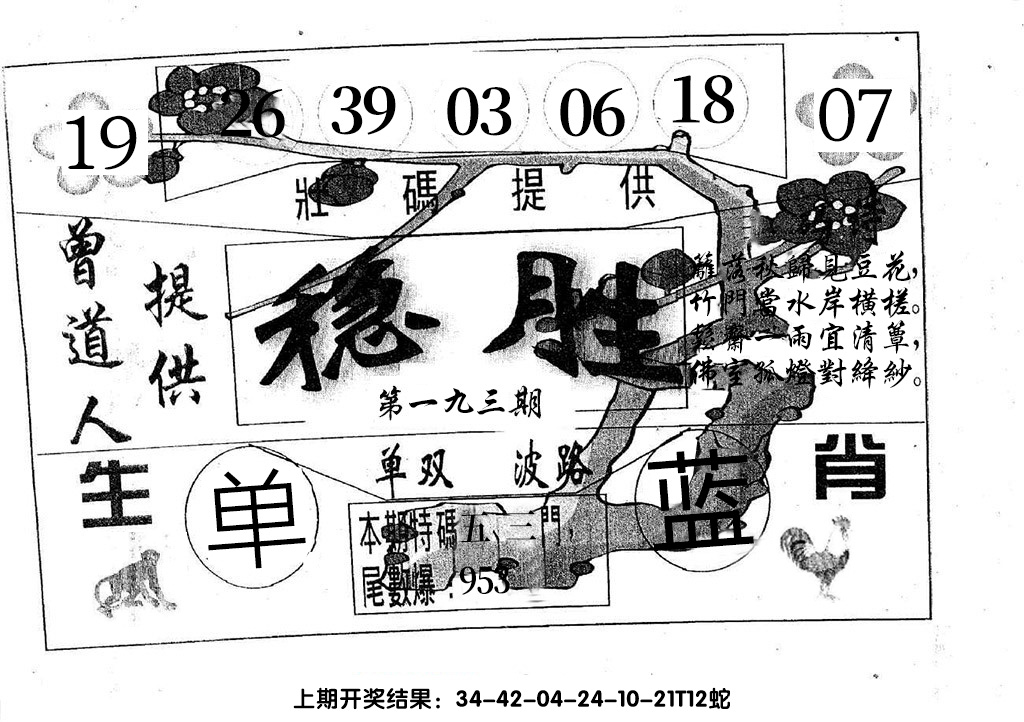 19 26 39 03 06 18 07
壯碼提供
曾道人
提供
稳胜
第一九三期
特
籬落秋歸見豆花，
竹門當水岸橫槎。
齋一雨宜清簟，
佛室孤燈對絳紗。
单双 波路
生
肖
单
蓝
本期特碼五、三門，
尾數爆：953
上期开奖结果：34-42-04-24-10-21T12蛇